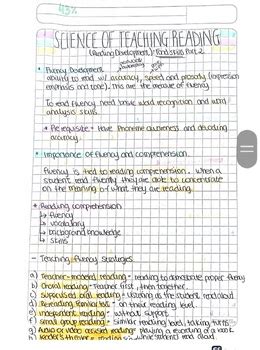 43%
SCIENCE OF TEACHING READING
(Reading Development) Part 2
• Fluency Development
ability to read w/ accuracy, speed and prosody (expression
emphasis and tone). This are the measure of fluency
To read fluency need basic word recognition and word
analysis skills.
Pre requisite - Have phonemic awareness and decoding
accuracy.
• Importance of fluency and comprehension.
Fluency is tied to reading comprehension. When a
student read fluently they are able to concentrate
on the meaning of what they are reading.
Reading comprehension
↳ fluency
↳ vocabulary
↳ background knowledge
↳ skills
- Teaching fluency strategies
a) Teacher-modeled reading - reading to demonstrate proper fluency
b) Choral reading - Teacher first, then together.
c) Supervised oral reading - Listening as the student read aloud
d) on their reading level
e) Independent reading - without support.
f) Small group reading - Similar reading level, taking turns
g) Audio or video assisted reading - playing a recording of a book